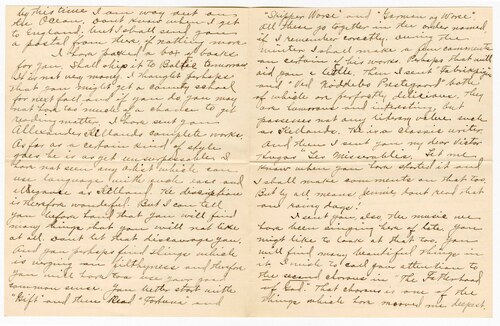 by this time I am way out on
the Ocean. Dont know when I get
to England, but I shall send you
a postal from there if nothing more.
I have packed a box of books
for you. Shall ship it to Baltic tomorrow.
It is not very many. I thought perhaps
that you might get a county school
for next fall and if you do you may
not have too much of a chance to get
reading matter. I have sent you
Allexander Kellands complete works.
As far as a certain kind of style
goes he is as yet unsurpassable. I
have not seen any artist which can
use language with such ease and
elegance as Kelland. He
is therefore wonderful. But I can tell
you before hand that you will find
many things that you will not like
at all. Dont let that discourage you.
And you perhaps find things which
is verging on filthyness and therefore
you will have too use any your
common sense. You better start with
"Gift" and then Read "Fortuna" and
"Skipper Worse" and "Garman og Worse".
All these go together in the order named
if I remember correctly. During the
winter I shall make a few comments
on certain of his works. Perhaps that will
aid you a little. Then I sent "Fabrikspigen"
and "Ved Prestegaard" both
of which are perfectly delicious. They
are humorous and intresting but
possesses not any literary value such
as Kellands. He is a classic writer.
And then I sent you my dear Victor
Hugos "Les Miserables". Let me
know when you have started it and
I shall make comments on that too.
But by all means Jennie dont read that
one rainy days!
I send you also the music we
have been singing here of late. You
might like to look at that too. You
will find many beautiful things in
it. I wish to call your attention to
the second chorus in "The Fatherhood
of God". That chorus is one of the
things which have moved me deepest